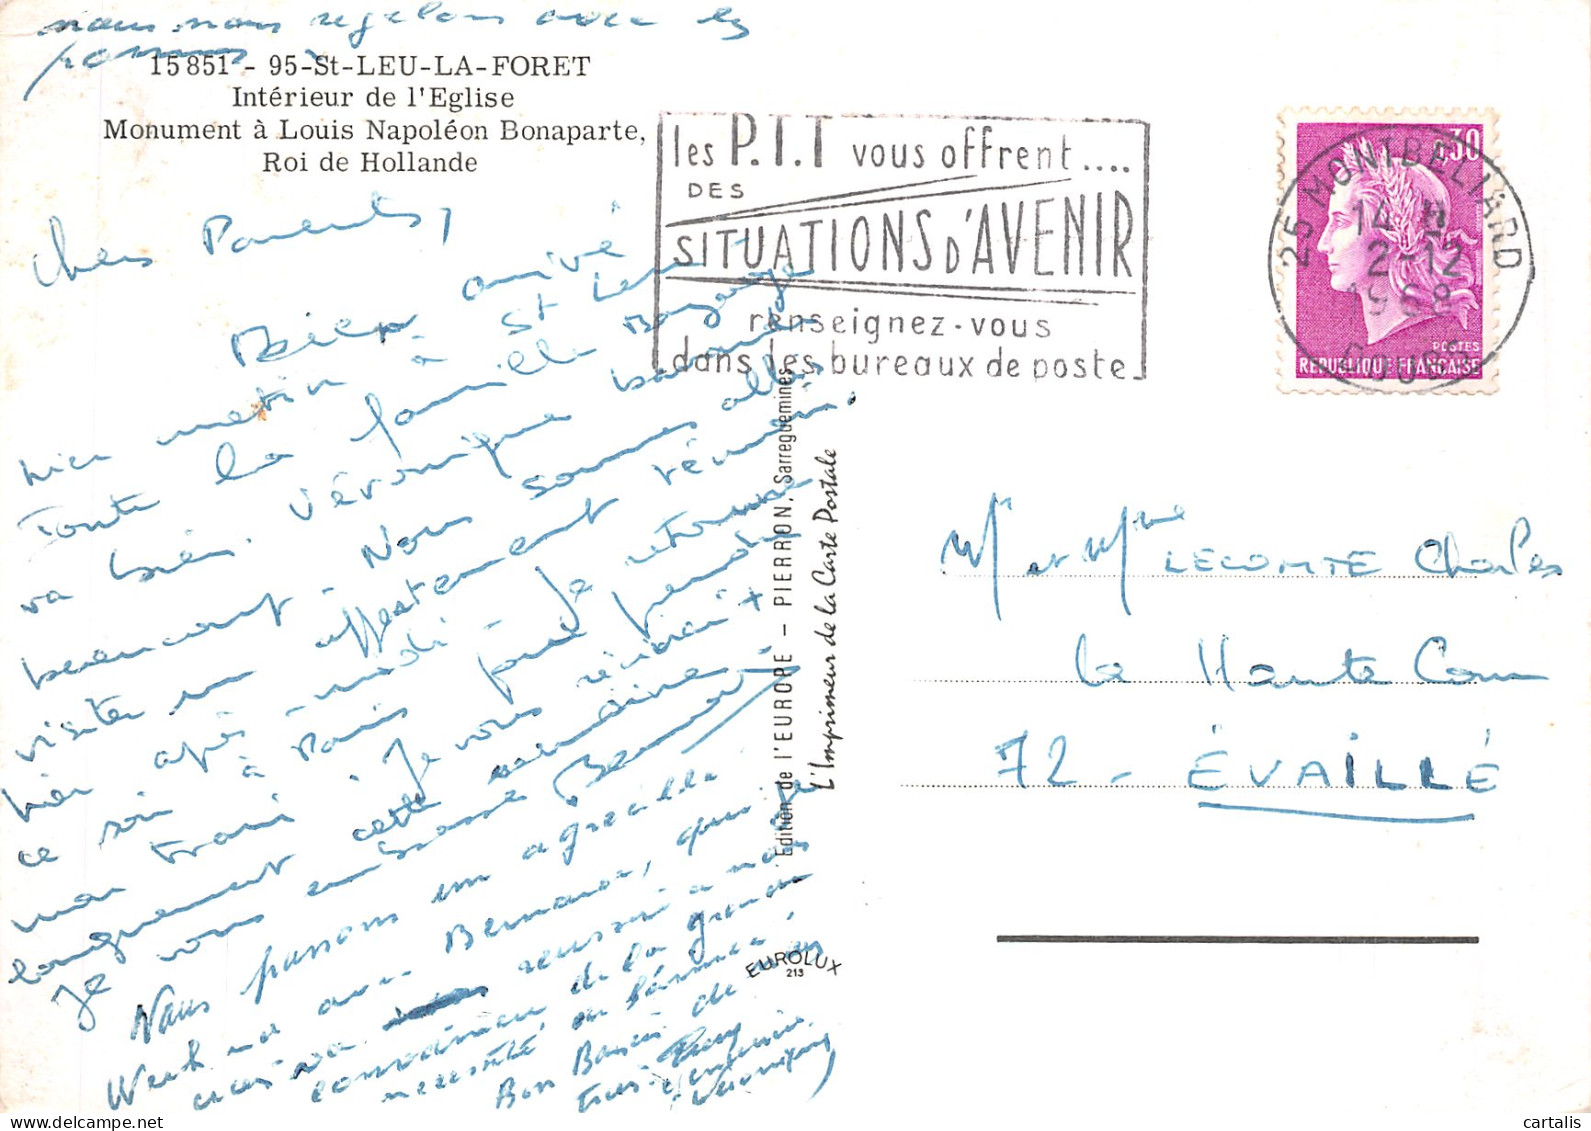 nous nous regalons avec les
pommes
15 851 - 95-St-LEU-LA-FORET
Intérieur de l'Eglise
Monument à Louis Napoléon Bonaparte,
Roi de Hollande
les P.T.T vous offrent....
DES
SITUATIONS D'AVENIR
renseignez-vous
dans les bureaux de poste
0,30
POSTES
REPUBLIQUE FRANÇAISE
25 MONTBELIARD
14 H
2-12
1968
DOUBS
Chers Parents,
Bien arrivé
hier matin à St Leu
Toute la famille
va bien. Véronique bavarde
beaucoup. Nous sommes allés
visiter un appartement
hier après-midi. Je retourne
ce soir à Paris pour prendre
mon train. Je vous écrirai +
longuement cette semaine.
Je vous embrasse Bernard
Nous passons un agréable
Week end avec Bernard, qui
a réussi à nous
convaincre de la grande
nécessité
Bon Baisers de nous
trois
Véronique
Edition de l'EUROPE - PIERRON, Sarreguemines
L'Imprimeur de la Carte Postale
EUROLUX
213
Mr et Mme LECOMTE Charles
La Haute Cour
72 - ÉVAILLÉ
cartalis